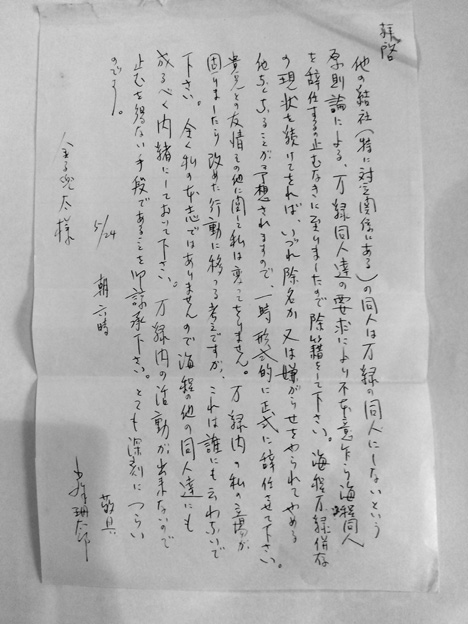 拝啓
他の結社（特に対立関係にある）の同人は万緑の同人にしないという
原則論による、万緑同人達の要求により不本意乍ら海程同人
を辞任するの止むなきに至りましたので除籍をして下さい。海程万緑併存
の現状を続けてをれば、いづれ除名か又は嫌がらせをやられてやめる
他なくなることが予想されますので、一時形式的に正式に辞任させて下さい。
貴兄との友情その他に関し私は変ってをりません。万緑内の私の立場が
固りましたら改めた行動に移つる考えですが、これは誰にも云わないで
下さい。全く私の本志ではありませんので海程の他の同人達にも
成るべく内緒にしておって下さい。万緑内の活動が出来ないので
止むを得ない手段であることを御諒承下さい。とても深刻につらい
のです。
敬具
5/24 朝六時
金子兜太様